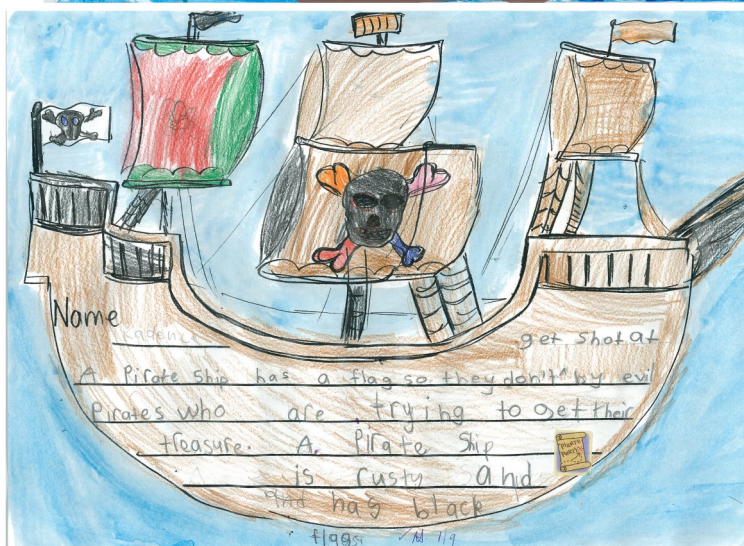 Name Kadence
get shot at
A Pirate Ship has a flag so they don't ^ by evil
Pirates who are trying to get their
treasure. A Pirate Ship
is rusty and
and has black
flags.